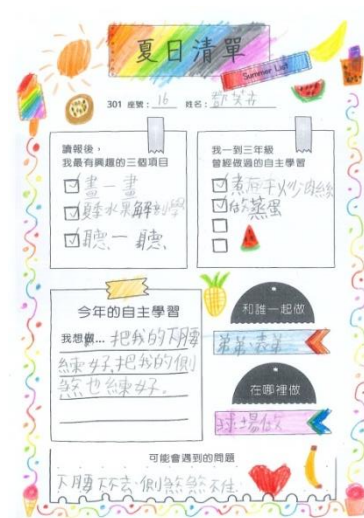 夏日清單
Summer List
301 座號：16 姓名：
讀報後，
我最有興趣的三個項目
畫一畫
夏季水果解剖學
聽一聽
我一到三年級
曾經做過的自主學習
做蒸蛋
今年的自主學習
我想做...把我的下腰
練好,把我的側
煞也練好.
和誰一起做
弟弟表弟
在哪裡做
球場做
可能會遇到的問題
下腰下不去.側煞煞不住.